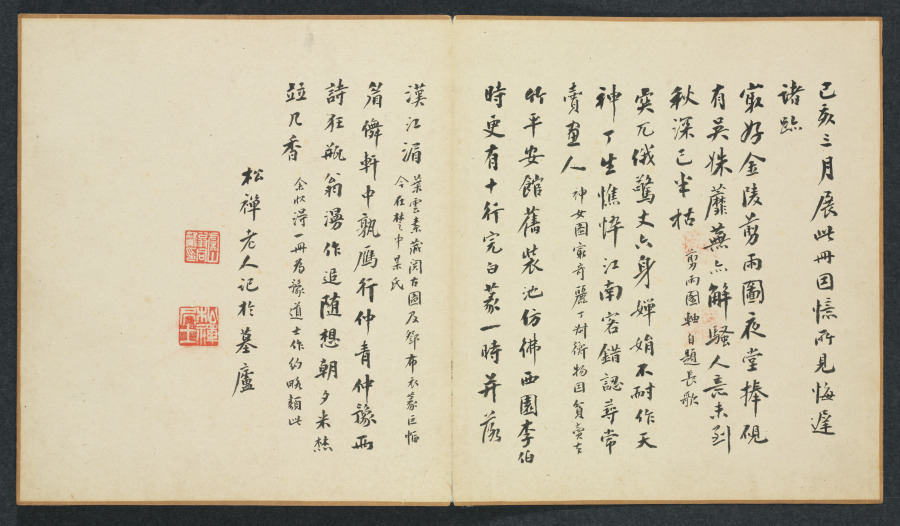 己亥三月展此冊因憶所見悔遲
諸跡
最好金陵剪雨圖夜堂捧硯
有吳姝蘼蕪亦解騷人意未到
秋深已半枯 剪雨圖軸自題長歌
突兀俄驚丈六身嬋娟不耐作天
神丁生憔悴江南客錯認尋常
賣畫人 神女圖最奇麗丁對衡物因貧賣去
竹平安館舊裝池仿佛西園李伯
時更有十行完白篆一時并落
漢江湄 葉雲素藏閱古圖及鄧布衣篆巨幅
今在楚中某氏
眉僲軒中孰雁行仲青仲豫兩
詩狂瓶翁漫作追随想朝夕米𤇆
並几香 余收得一冊為豫道士作約略類此
松禪老人記於墓廬
松禪居士